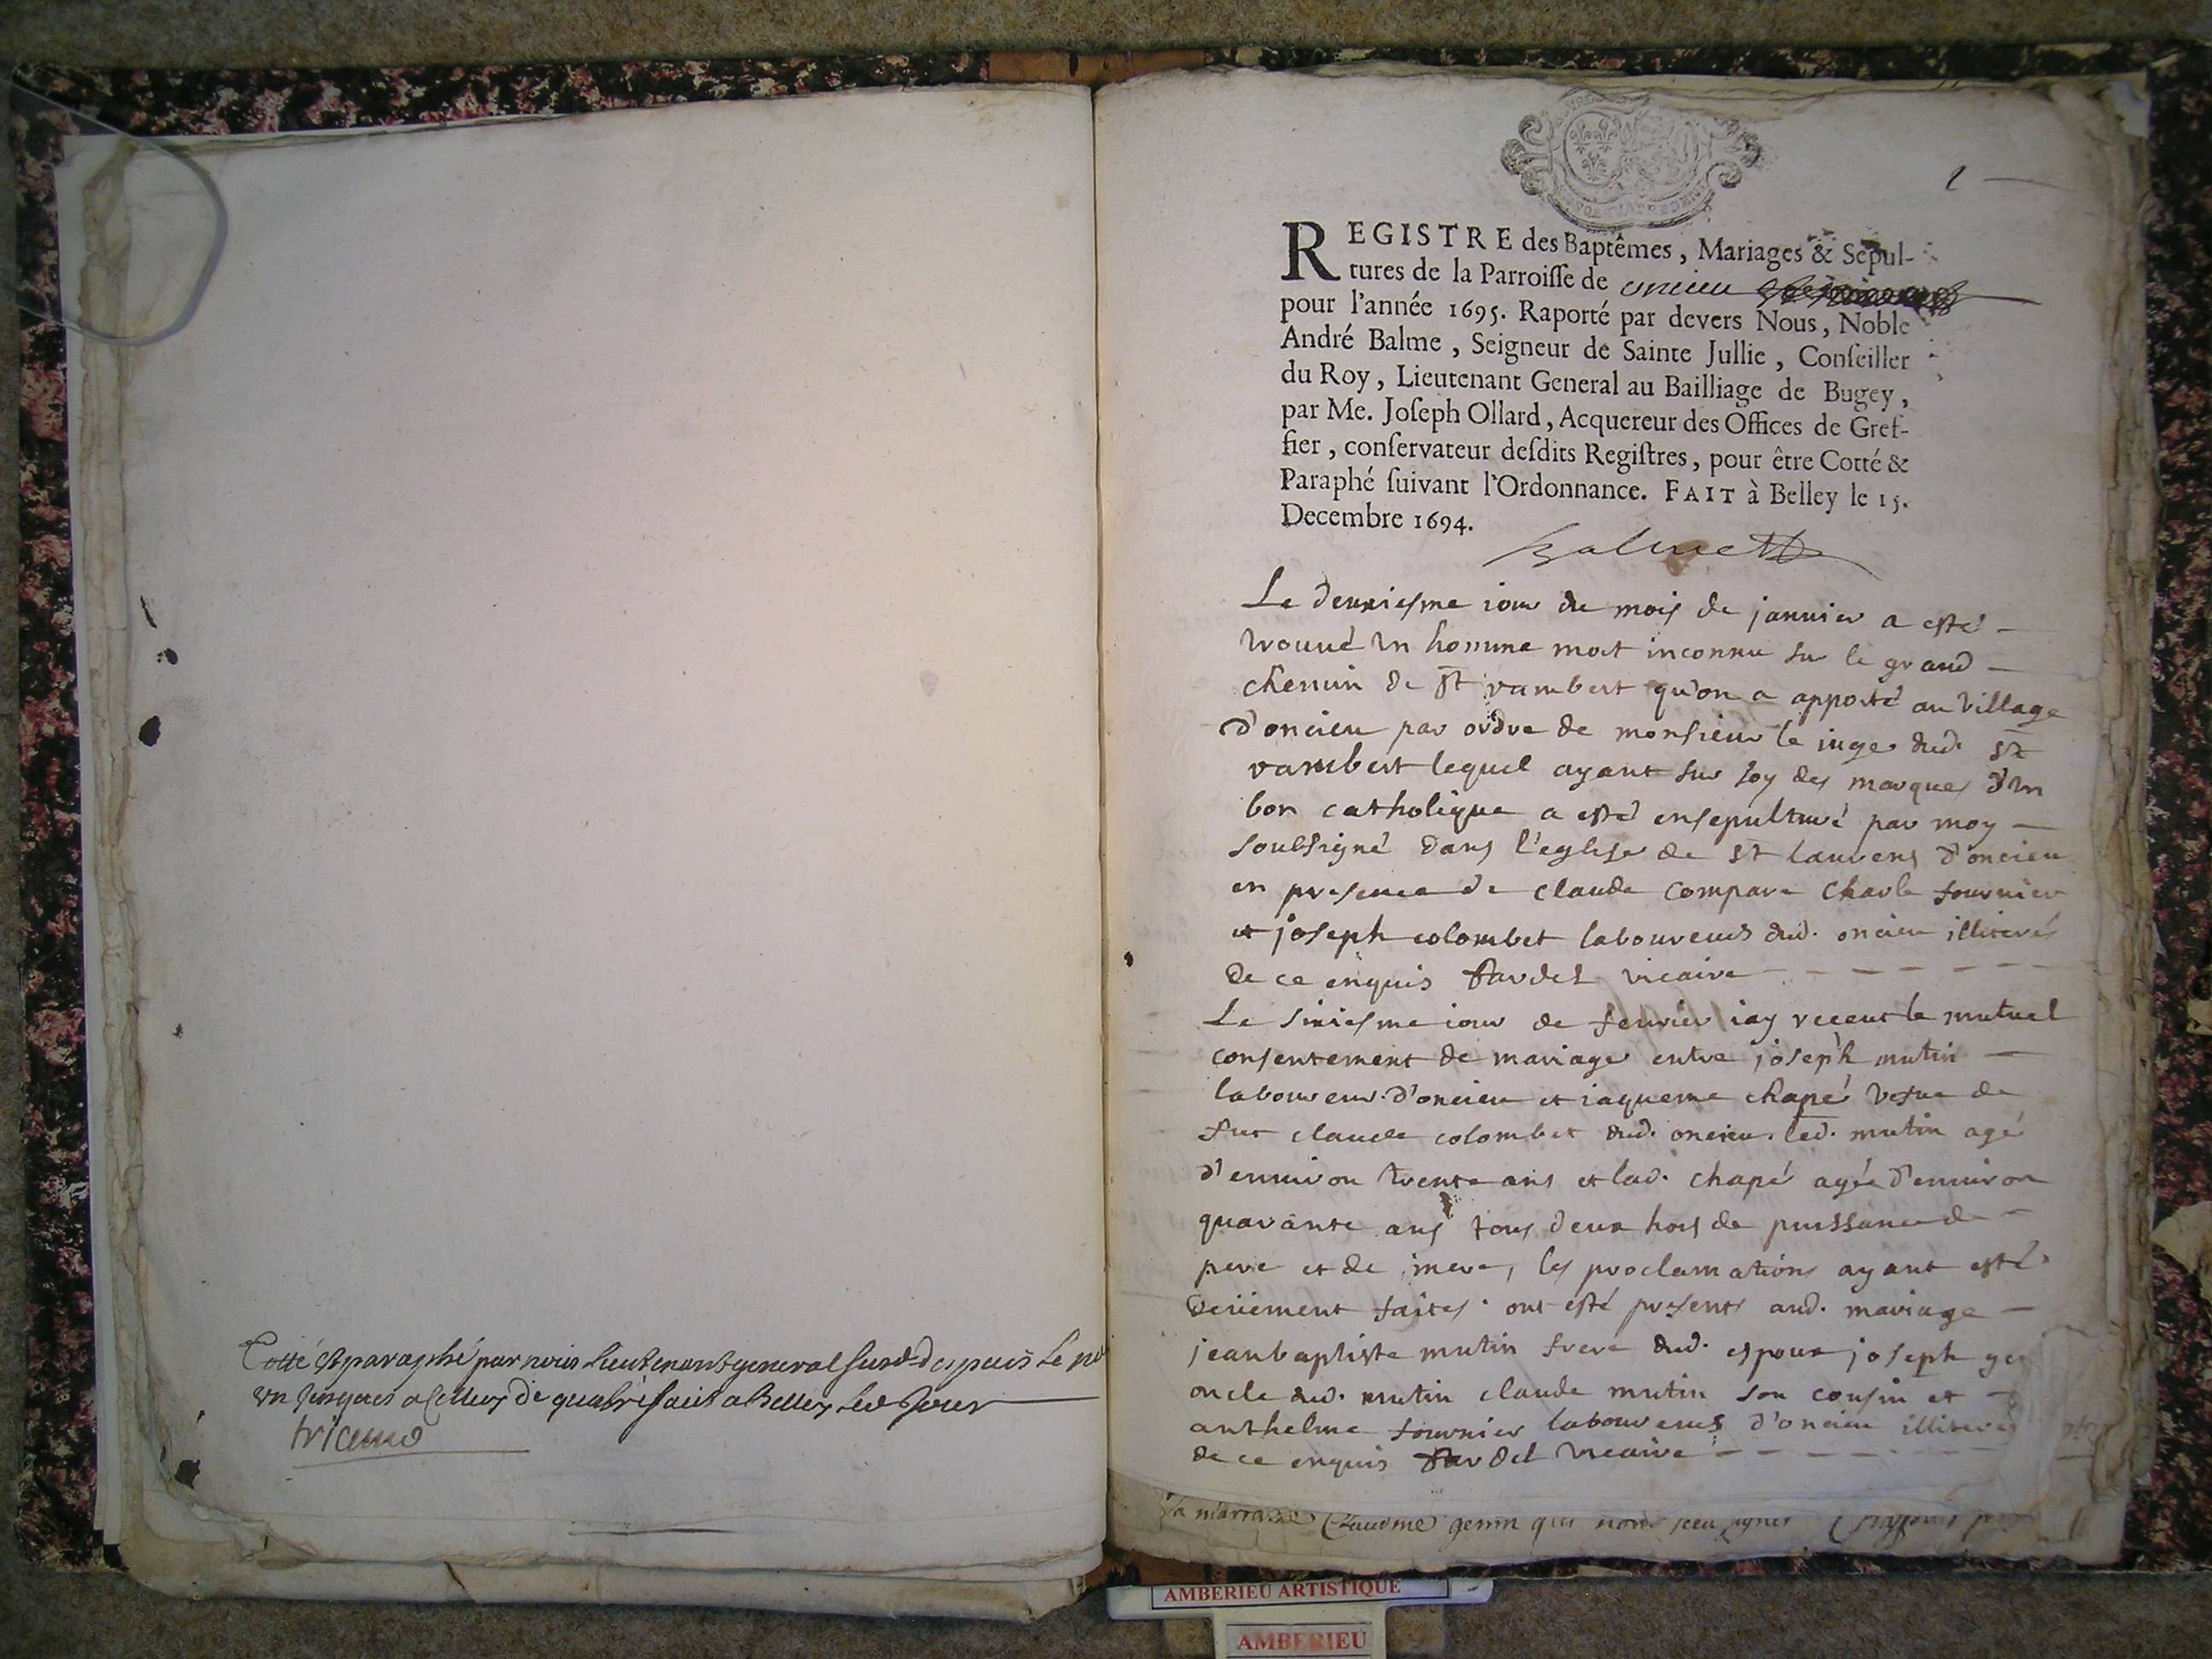 Cotté et paraphé par nous Lieutenant general susd. depuis Le no
un jusques a celluy de quatre fait a Belley Led Jour
1
REGISTRE des Baptêmes, Mariages & Sepul-
tures de la Parroisse de oncieu
pour l'année 1695. Raporté par devers Nous, Noble
André Balme, Seigneur de Sainte Jullie, Conseiller
du Roy, Lieutenant General au Bailliage de Bugey,
par Me. Joseph Ollard, Acquereur des Offices de Gref-
fier, conservateur desdits Registres, pour être Cotté &
Paraphé suivant l'Ordonnance. FAIT à Belley le 15.
Decembre 1694.
Balme
Le deuxiesme iour du mois de januier a esté
trouué vn homme mort inconnu sur le grand
chemin de st rambert qu'on a apporté au village
d'oncieu par ordre de monsieur le iuge dud. st
rambert lequel ayant sur soy des marques d'vn
bon catholique a esté ensepulturé par moy
soubsigné dans l'eglise de st laurens d'oncieu
en presence de claude compare charle fournier
et joseph colombet laboureurs dud. oncieu illiterés
de ce enquis Tardet vicaire
Le sixiesme iour de feurier iay receut le mutuel
consentement de mariage entre joseph mutin
laboureur d'oncieu et iaqueme chapé vefue de
fut claude colombet dud. oncieu. led. mutin agé
d'enuiron trente ans et lad. chapé agée d'enuiron
quarante ans tous deux hors de puissance de
pere et de mere, les proclamations ayant esté
deüement faites. ont esté presents aud. mariage
jean baptiste mutin frere dud. espoux joseph
oncle dud. mutin claude mutin son cousin et
anthelme fournier laboureurs d'oncieu illiterés
de ce enquis Tardet vicaire
la marraine Claudme genin qui nont sceu signer
AMBERIEU ARTISTIQUE
AMBERIEU